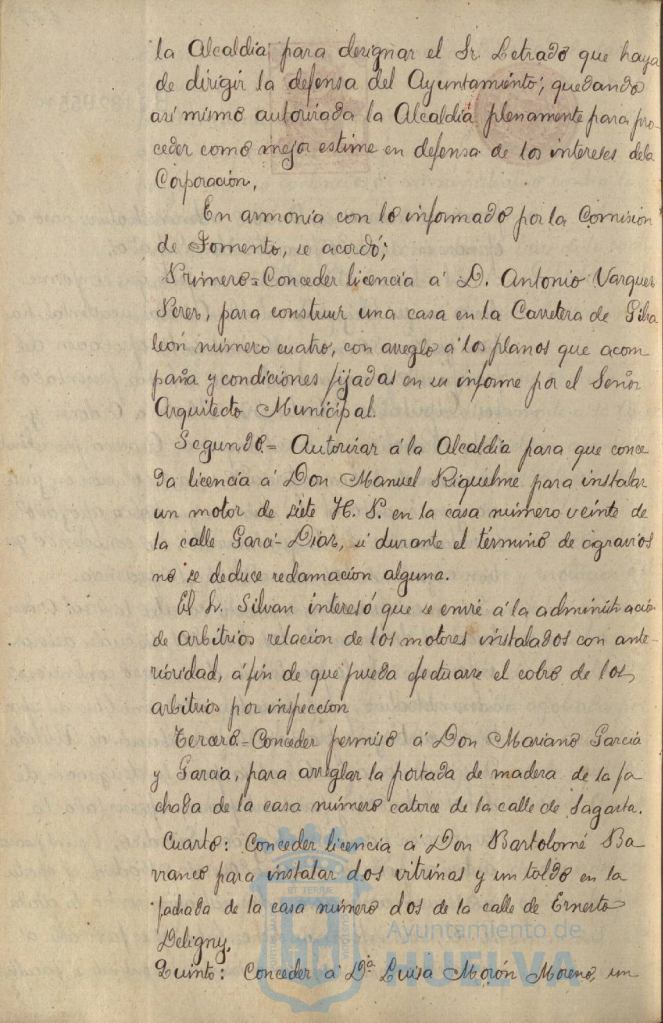 la Alcaldia para designar el Sr. Letrado que haya
de dirigir la defensa del Ayuntamiento; quedando
asi mismo autorizada la Alcaldia plenamente para pro-
ceder como mejor estime en defensa de los intereses dela
Corporación,
En armonia con lo informado por la Comision
de Fomento, se acordó;
Primero=Conceder licencia á D. Antonio Vazquez
Perez, para construir una casa en la Carretera de Gibra
león número cuatro, con arreglo á los planos que acom
paña y condiciones fijadas en su informe por el Señor
Arquitecto Municipal.
Segundo.= Autorizar á la Alcaldia para que conce
da licencia á Don Manuel Riquelme para instalar
un motor de siete H. P. en la casa número veinte de
la calle Garci-Diaz, si durante el término de agravios
no se deduce reclamacion alguna.
El Sr. Silvan interesó que se envie á la administracion
de arbitrios relacion de los motores instalados con ante-
rioridad, á fin de que pueda efectuarse el cobro de los
arbitrios por inspeccion
Tercero.=Conceder permiso á Don Mariano Garcia
y Garcia, para arreglar la portada de madera de la fa
chada de la casa número catorce de la calle de Sagasta.
Cuarto: Conceder licencia á Don Bartolomé Ba
rranco para instalar dos vitrinas y un toldo en la
fachada de la casa número dos de la calle de Ernesto
Deligny.
Quinto: Conceder á Dª Luisa Morón Moreno, un
Ayuntamiento de
HUELVA